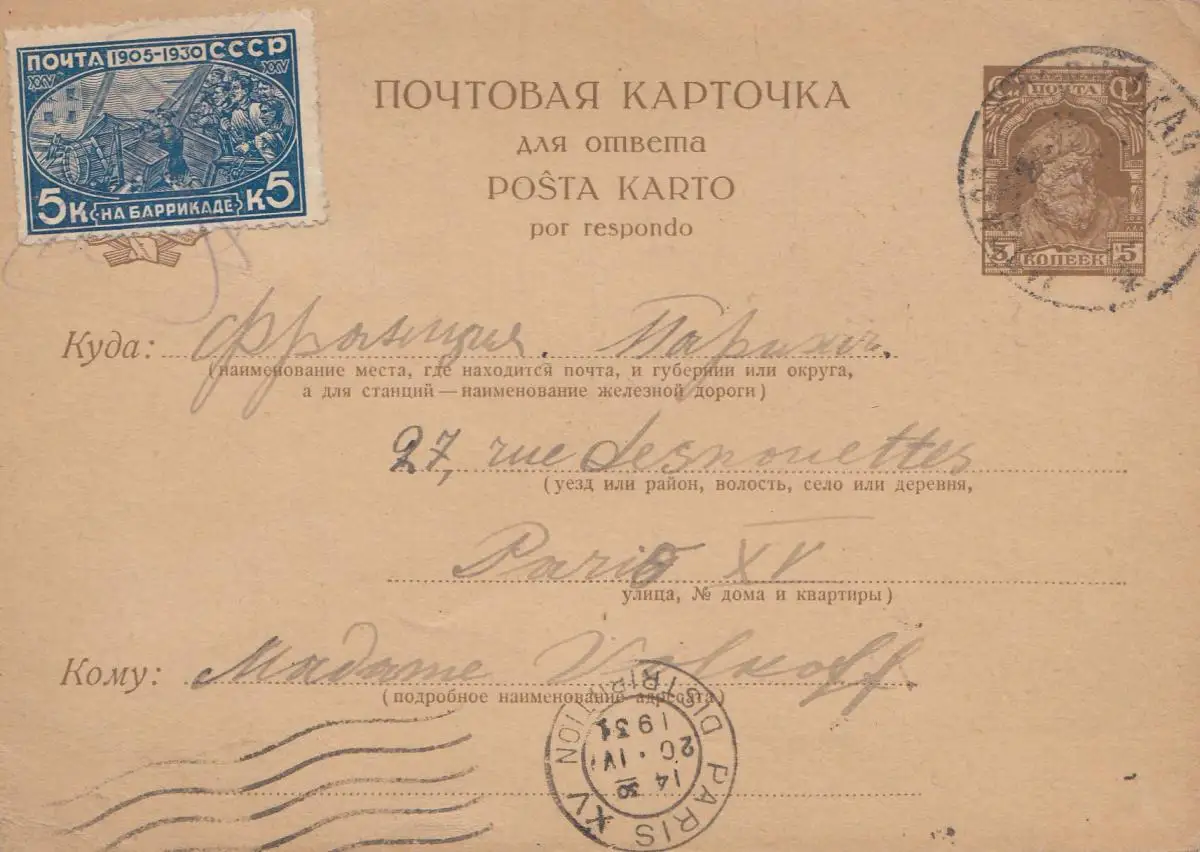 ПОЧТА 1905-1930 СССР
XXV XXV
5К НА БАРРИКАДЕ К5
ПОЧТОВАЯ КАРТОЧКА
для ответа
POŜTA KARTO
por respondo
ПОЧТА
5 КОПЕЕК 5
Куда: Франция. Париж.
(наименование места, где находится почта, и губернии или округа,
а для станций — наименование железной дороги)
27, rue Desnouettes
(уезд или район, волость, село или деревня,
Paris XV
улица, № дома и квартиры)
Кому: Madame Volkoff.
(подробное наименование адресата)
PARIS XV DISTRIBUTION
14 30
20 · IV
1931